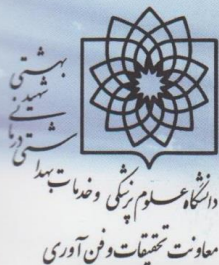 دانشگاه علوم پزشکی و خدمات بهداشتی درمانی شهید بهشتی
معاونت تحقیقات و فن آوری